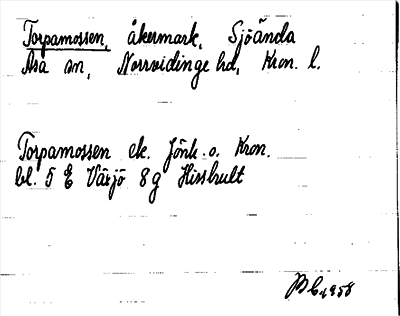 Torpamossen, åkermark, Sjöända
Asa sn, Norrvidinge hd, Kron. l.
Torpamossen ek. Jönk. o. Kron.
bl. 5 E Växjö 8g Hisshult